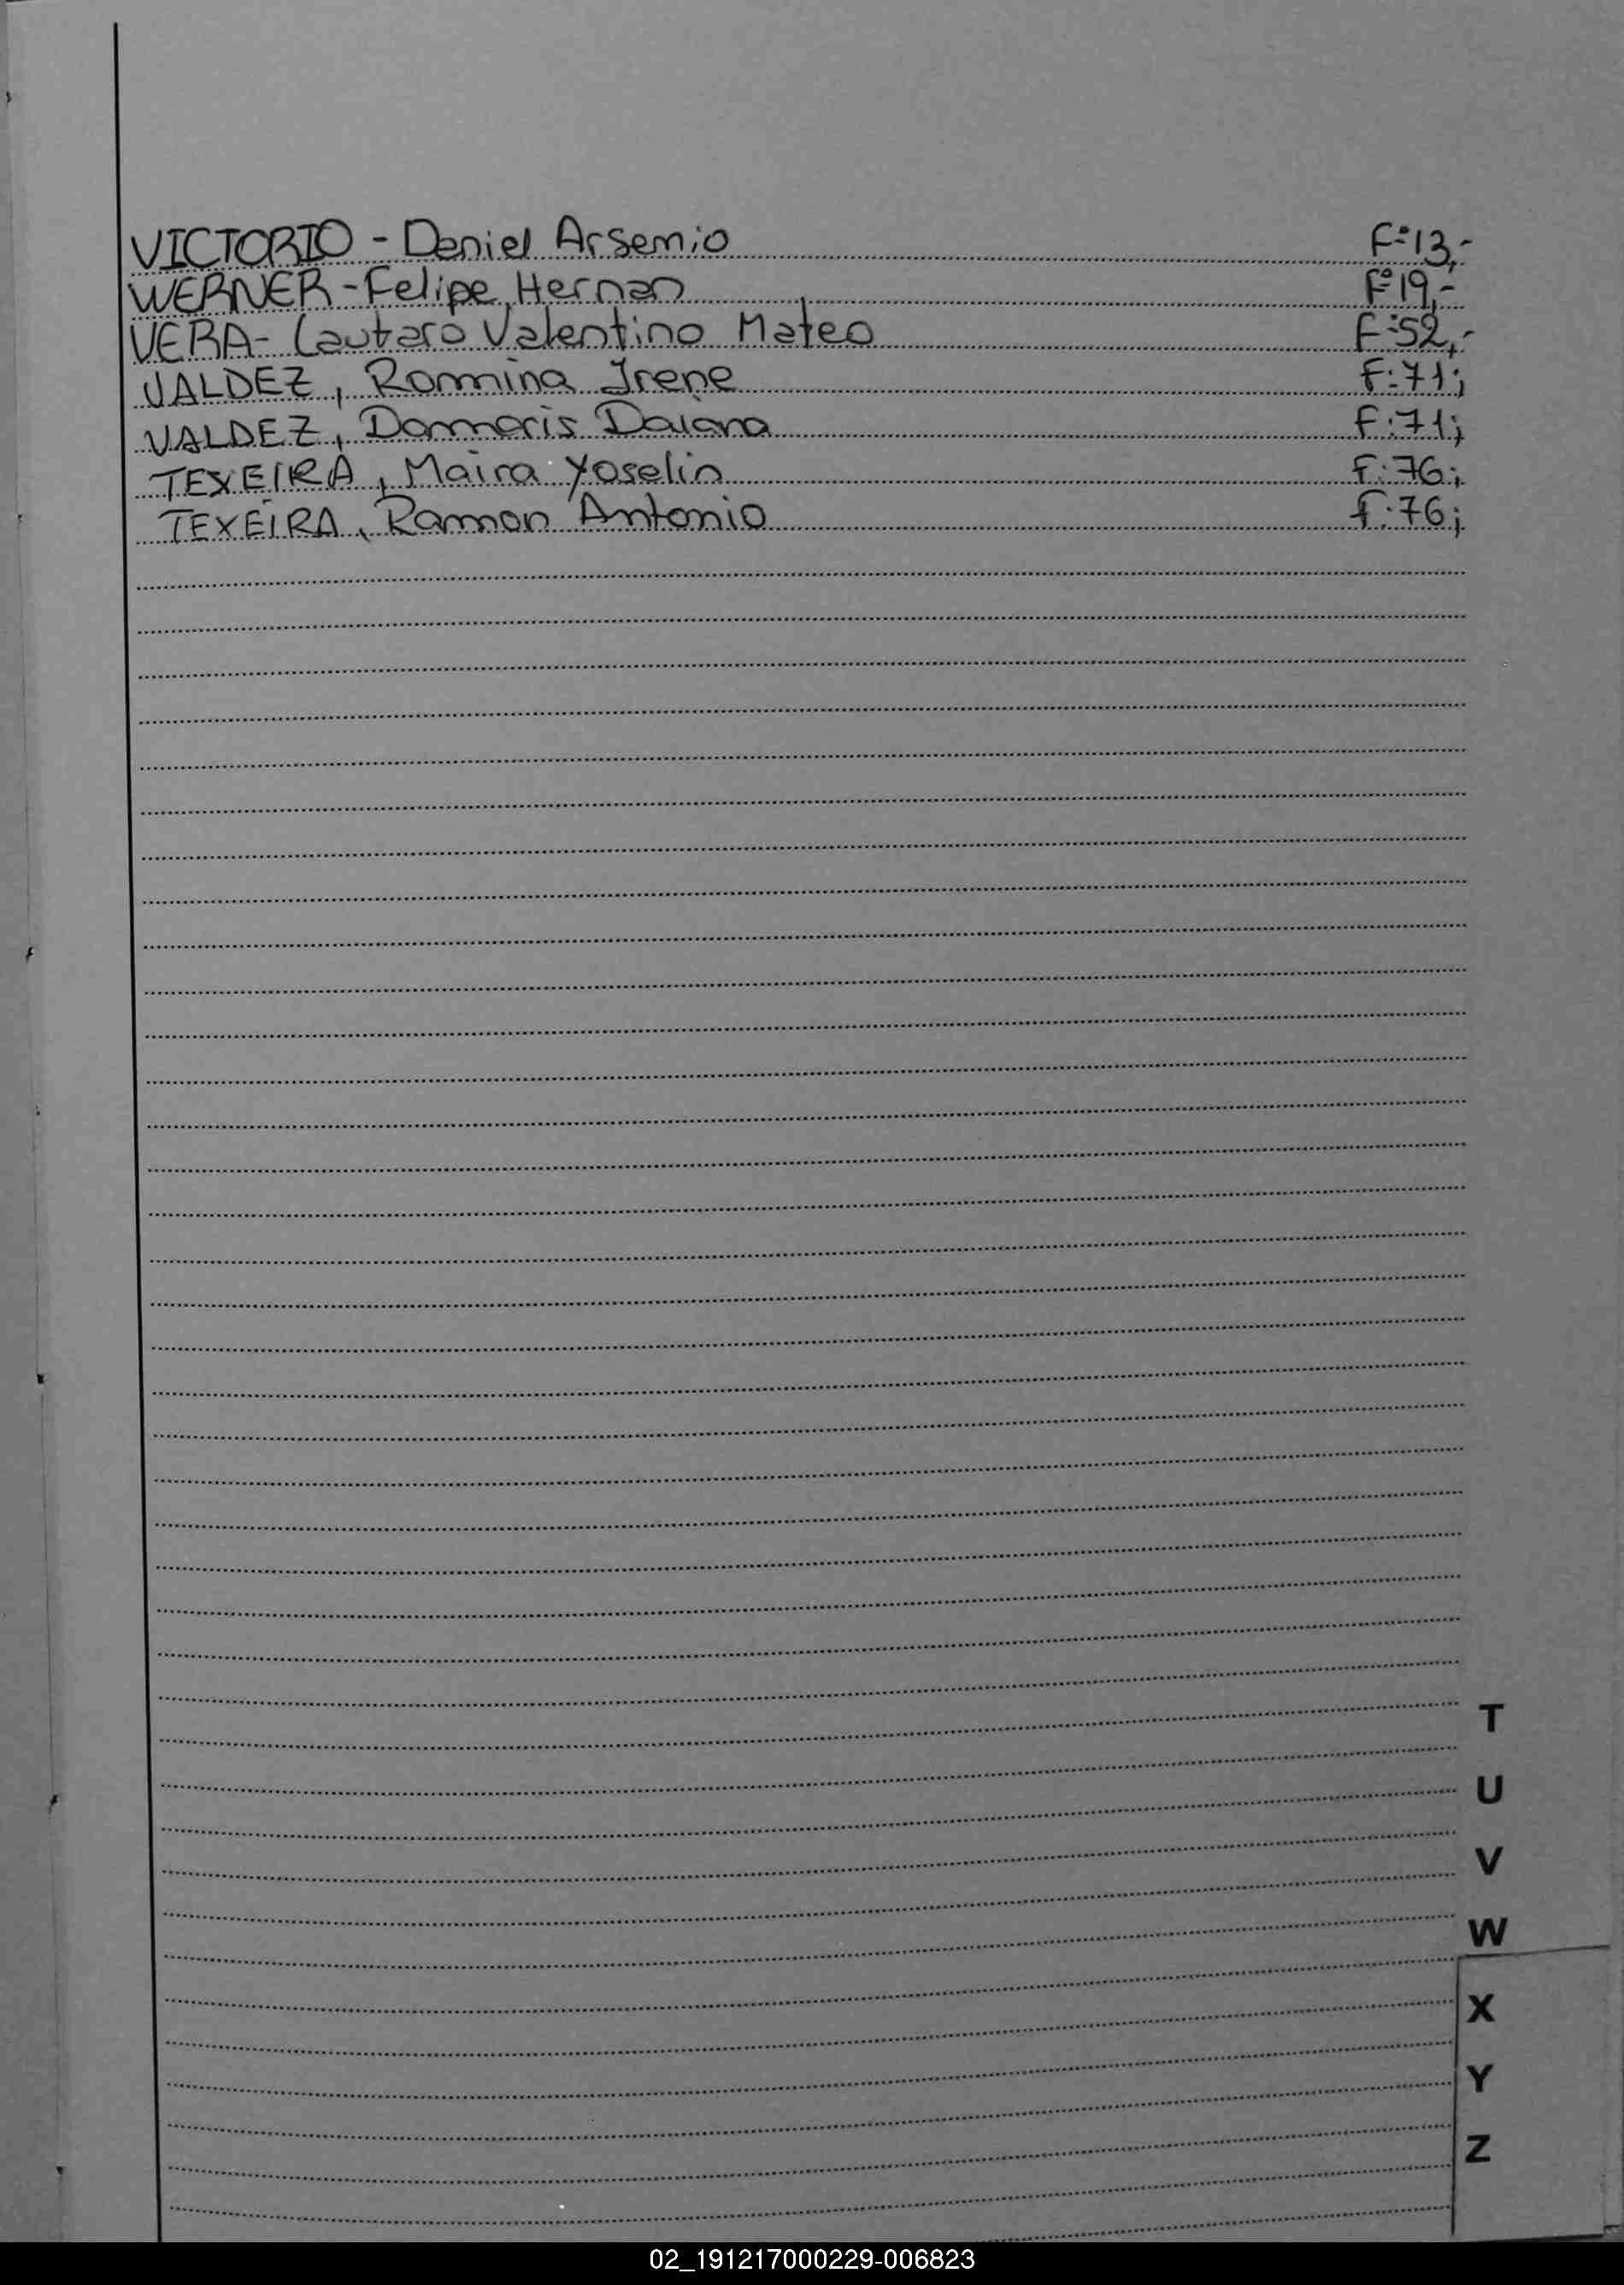 VICTORIO - Daniel Arsemio F°13,-
WERNER - Felipe Hernan F°19,-
VERA - Lautaro Valentino Mateo F:52,-
VALDEZ, Rommina Irene F:71;
VALDEZ, Dammaris Daiana F:71;
TEXEIRA, Maira Yoselin F:76;
TEXEIRA, Ramon Antonio F:76;
T
U
V
W
X
Y
Z
02_191217000229-006823